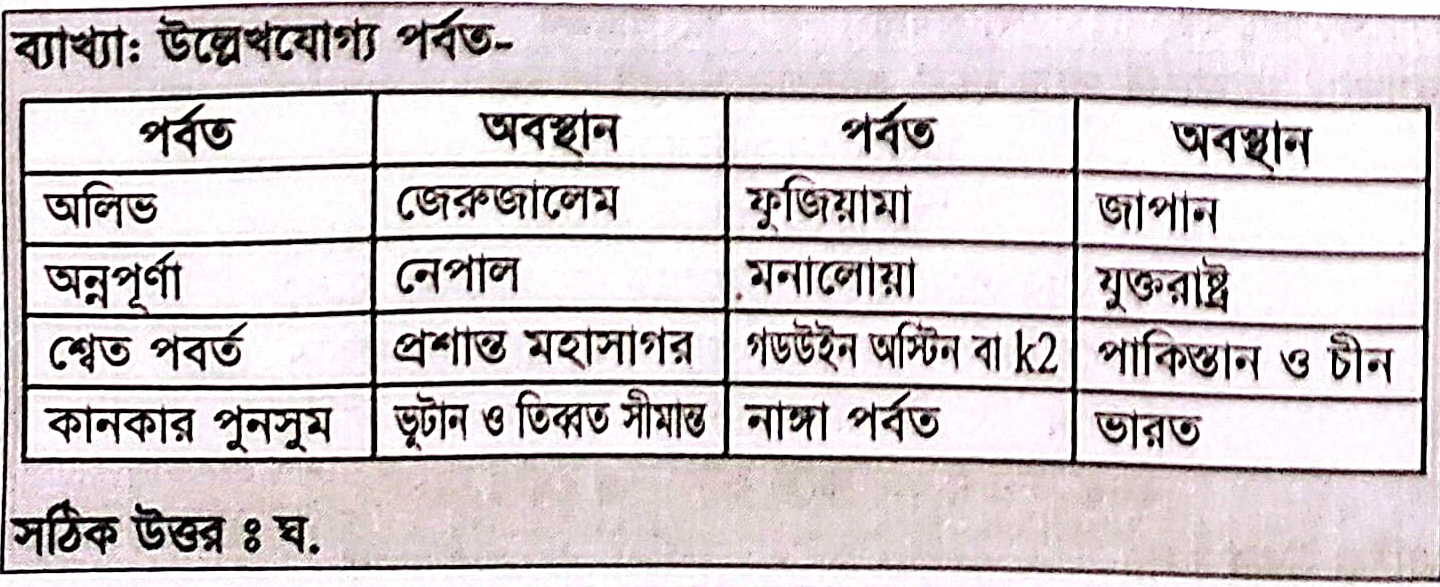 ব্যাখ্যা: উল্লেখযোগ্য পর্বত-
পর্বত অবস্থান পর্বত অবস্থান
অলিভ জেরুজালেম ফুজিয়ামা জাপান
অন্নপূর্ণা নেপাল মনালোয়া যুক্তরাষ্ট্র
শ্বেত পবর্ত প্রশান্ত মহাসাগর গডউইন অস্টিন বা k2 পাকিস্তান ও চীন
কানকার পুনসুম ভুটান ও তিব্বত সীমান্ত নাঙ্গা পর্বত ভারত
সঠিক উত্তর ঃ ঘ.